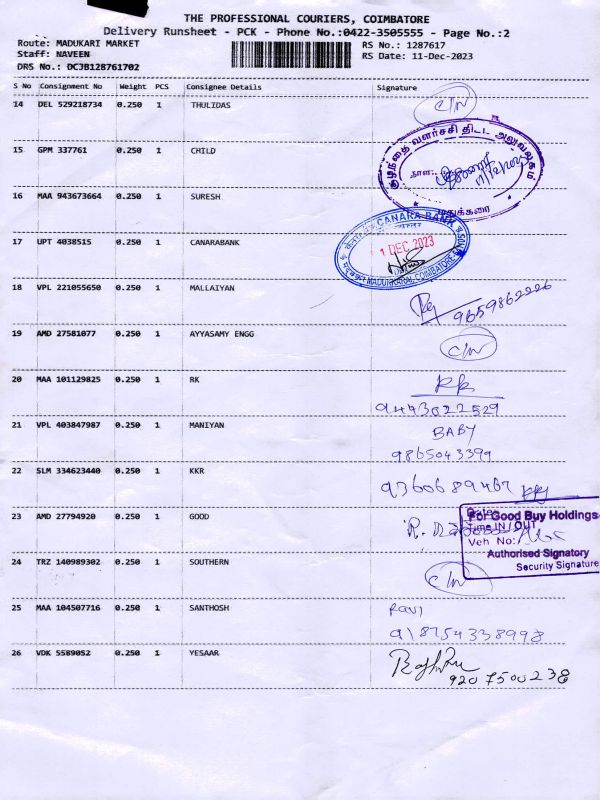 THE PROFESSIONAL COURIERS, COIMBATORE
Delivery Runsheet - PCK - Phone No.:0422-3505555 - Page No.:2
Route: MADUKARI MARKET RS No.: 1287617
Staff: NAVEEN RS Date: 11-Dec-2023
DRS No.: DCJB128761702
S No Consignment No Weight PCS Consignee Details Signature
14 DEL 529218734 0.250 1 THULIDAS C/N
15 GPM 337761 0.250 1 CHILD
குழந்தை வளர்ச்சி திட்ட அலுவலகம்
நாள்:
மதுக்கரை
16 MAA 943673664 0.250 1 SURESH
CANARA BANK
17 UPT 4038515 0.250 1 CANARABANK
1 DEC 2023
MADUKKARAI, COIMBATORE
18 VPL 221055650 0.250 1 MALLAIYAN
9659862226
19 AMD 27581077 0.250 1 AYYASAMY ENGG C/N
20 MAA 101129825 0.250 1 RK
9443022529
21 VPL 403847987 0.250 1 MANIYAN BABY
9865043399
22 SLM 334623440 0.250 1 KKR 9360689467
23 AMD 27794920 0.250 1 GOOD
For Good Buy Holdings
Time IN / OUT
Veh No:
Authorised Signatory
Security Signature
24 TRZ 140989302 0.250 1 SOUTHERN C/N
25 MAA 104507716 0.250 1 SANTHOSH Ravi
918754338998
26 VDK 5589052 0.250 1 YESAAR
9207500238